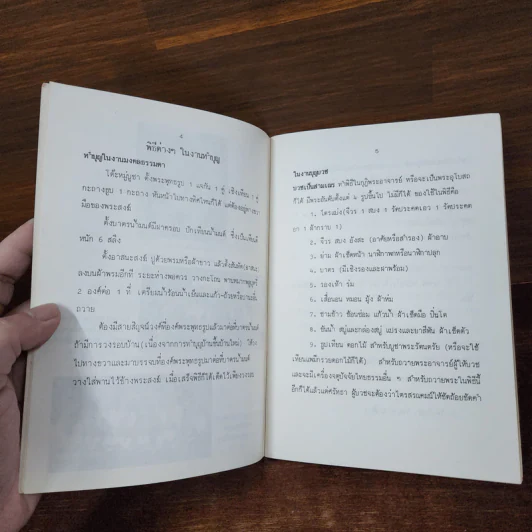 ๔
พิธีต่างๆ ในงานทำบุญ
ทำบุญในงานมงคลธรรมดา
โต๊ะหมู่บูชา ตั้งพระพุทธรูป ๑ แจกัน ๑ คู่ เชิงเทียน ๑ คู่
กะถางธูป ๑ กะถาง หันหน้าไปทางทิศไหนก็ได้ แต่ต้องอยู่ทางขวา
มือของพระสงฆ์
ตั้งบาตรน้ำมนต์มีฝาครอบ ปักเทียนน้ำมนต์ ขี้ผึ้งเป็นเทียน
หนัก 6 สลึง
ตั้งอาสนะสงฆ์ ปูด้วยพรมหรือผ้าขาว แล้วตั้งสัมผัด(อาสนะ)
ลงบนผ้าพรมอีกที่ ระยะห่างพอควร วางกะโถน พานหมากพลูบุหรี่
2 องค์ต่อ ๑ ที่ เตรียมน้ำร้อนน้ำเย็นและแก้ว-ถ้วย
ถวาย
ต้องมีสายสิญจน์วงที่องค์พระพุทธรูปแล้วมาต่อที่บาตรน้ำมนต์
ถ้ามีการวงรอบบ้าน (เนื่องจากการทำบุญบ้านขึ้นบ้านใหม่) ให้วง
ไปทางขวาและมาบรรจบที่องค์พระพุทธรูปมาต่อที่บาตรน้ำมนต์
วางใส่พานไว้ข้างพระสงฆ์ เมื่อเสร็จพิธีก็ได้
๕
ในงานบุญบวช
บวชเป็นสามเณร ทำพิธีในกุฏิพระอาจารย์ หรือจะเป็นพระอุโบสถ
ก็ได้ มีพระอันดับตั้งแต่ ๔ รูปขึ้นไป ไม่มีก็ได้ ของใช้ในพิธีคือ
1. ไตรแบ่ง(จีวร ๑ สบง ๑ รัดประคตเอว ๑ รัดประคต
อก ๑ ผ้ากราบ ๑)
2. จีวร สบง อังสะ (อาศัยหรือสำรอง) ผ้าอาบ
3. ย่าม ผ้าเช็ดหน้า นาฬิกาพกหรือนาฬิกาปลุก
4. บาตร (มีเชิงรองและฝาพร้อม)
5. รองเท้า ร่ม
6. เสื่อนอน หมอน มุ้ง ผ้าห่ม
7. ชามข้าว ช้อนซ่อม แก้วน้ำ ผ้าเช็ดมือ ปิ่นโต
8. ขันน้ำ สบู่และกล่องสบู่ แปรงและยาสีฟัน ผ้าเช็ดตัว
9. ธูปเทียน ดอกไม้ สำหรับบูชาพระรัตนตรัย (หรือจะใช้
เทียนแพมีกรวยดอกไม้ก็ได้) สำหรับถวายพระอาจารย์ผู้ให้บวช
และจะมีเครื่องจตุปัจจัยไทยธรรมอื่น ๆ สำหรับถวายพระในพิธีนี้
อีกก็ได้แล้วแต่ศรัทธา ผู้บวชจะต้องว่าไตรสรณคมน์ให้ชัดถ้อยชัดคำ